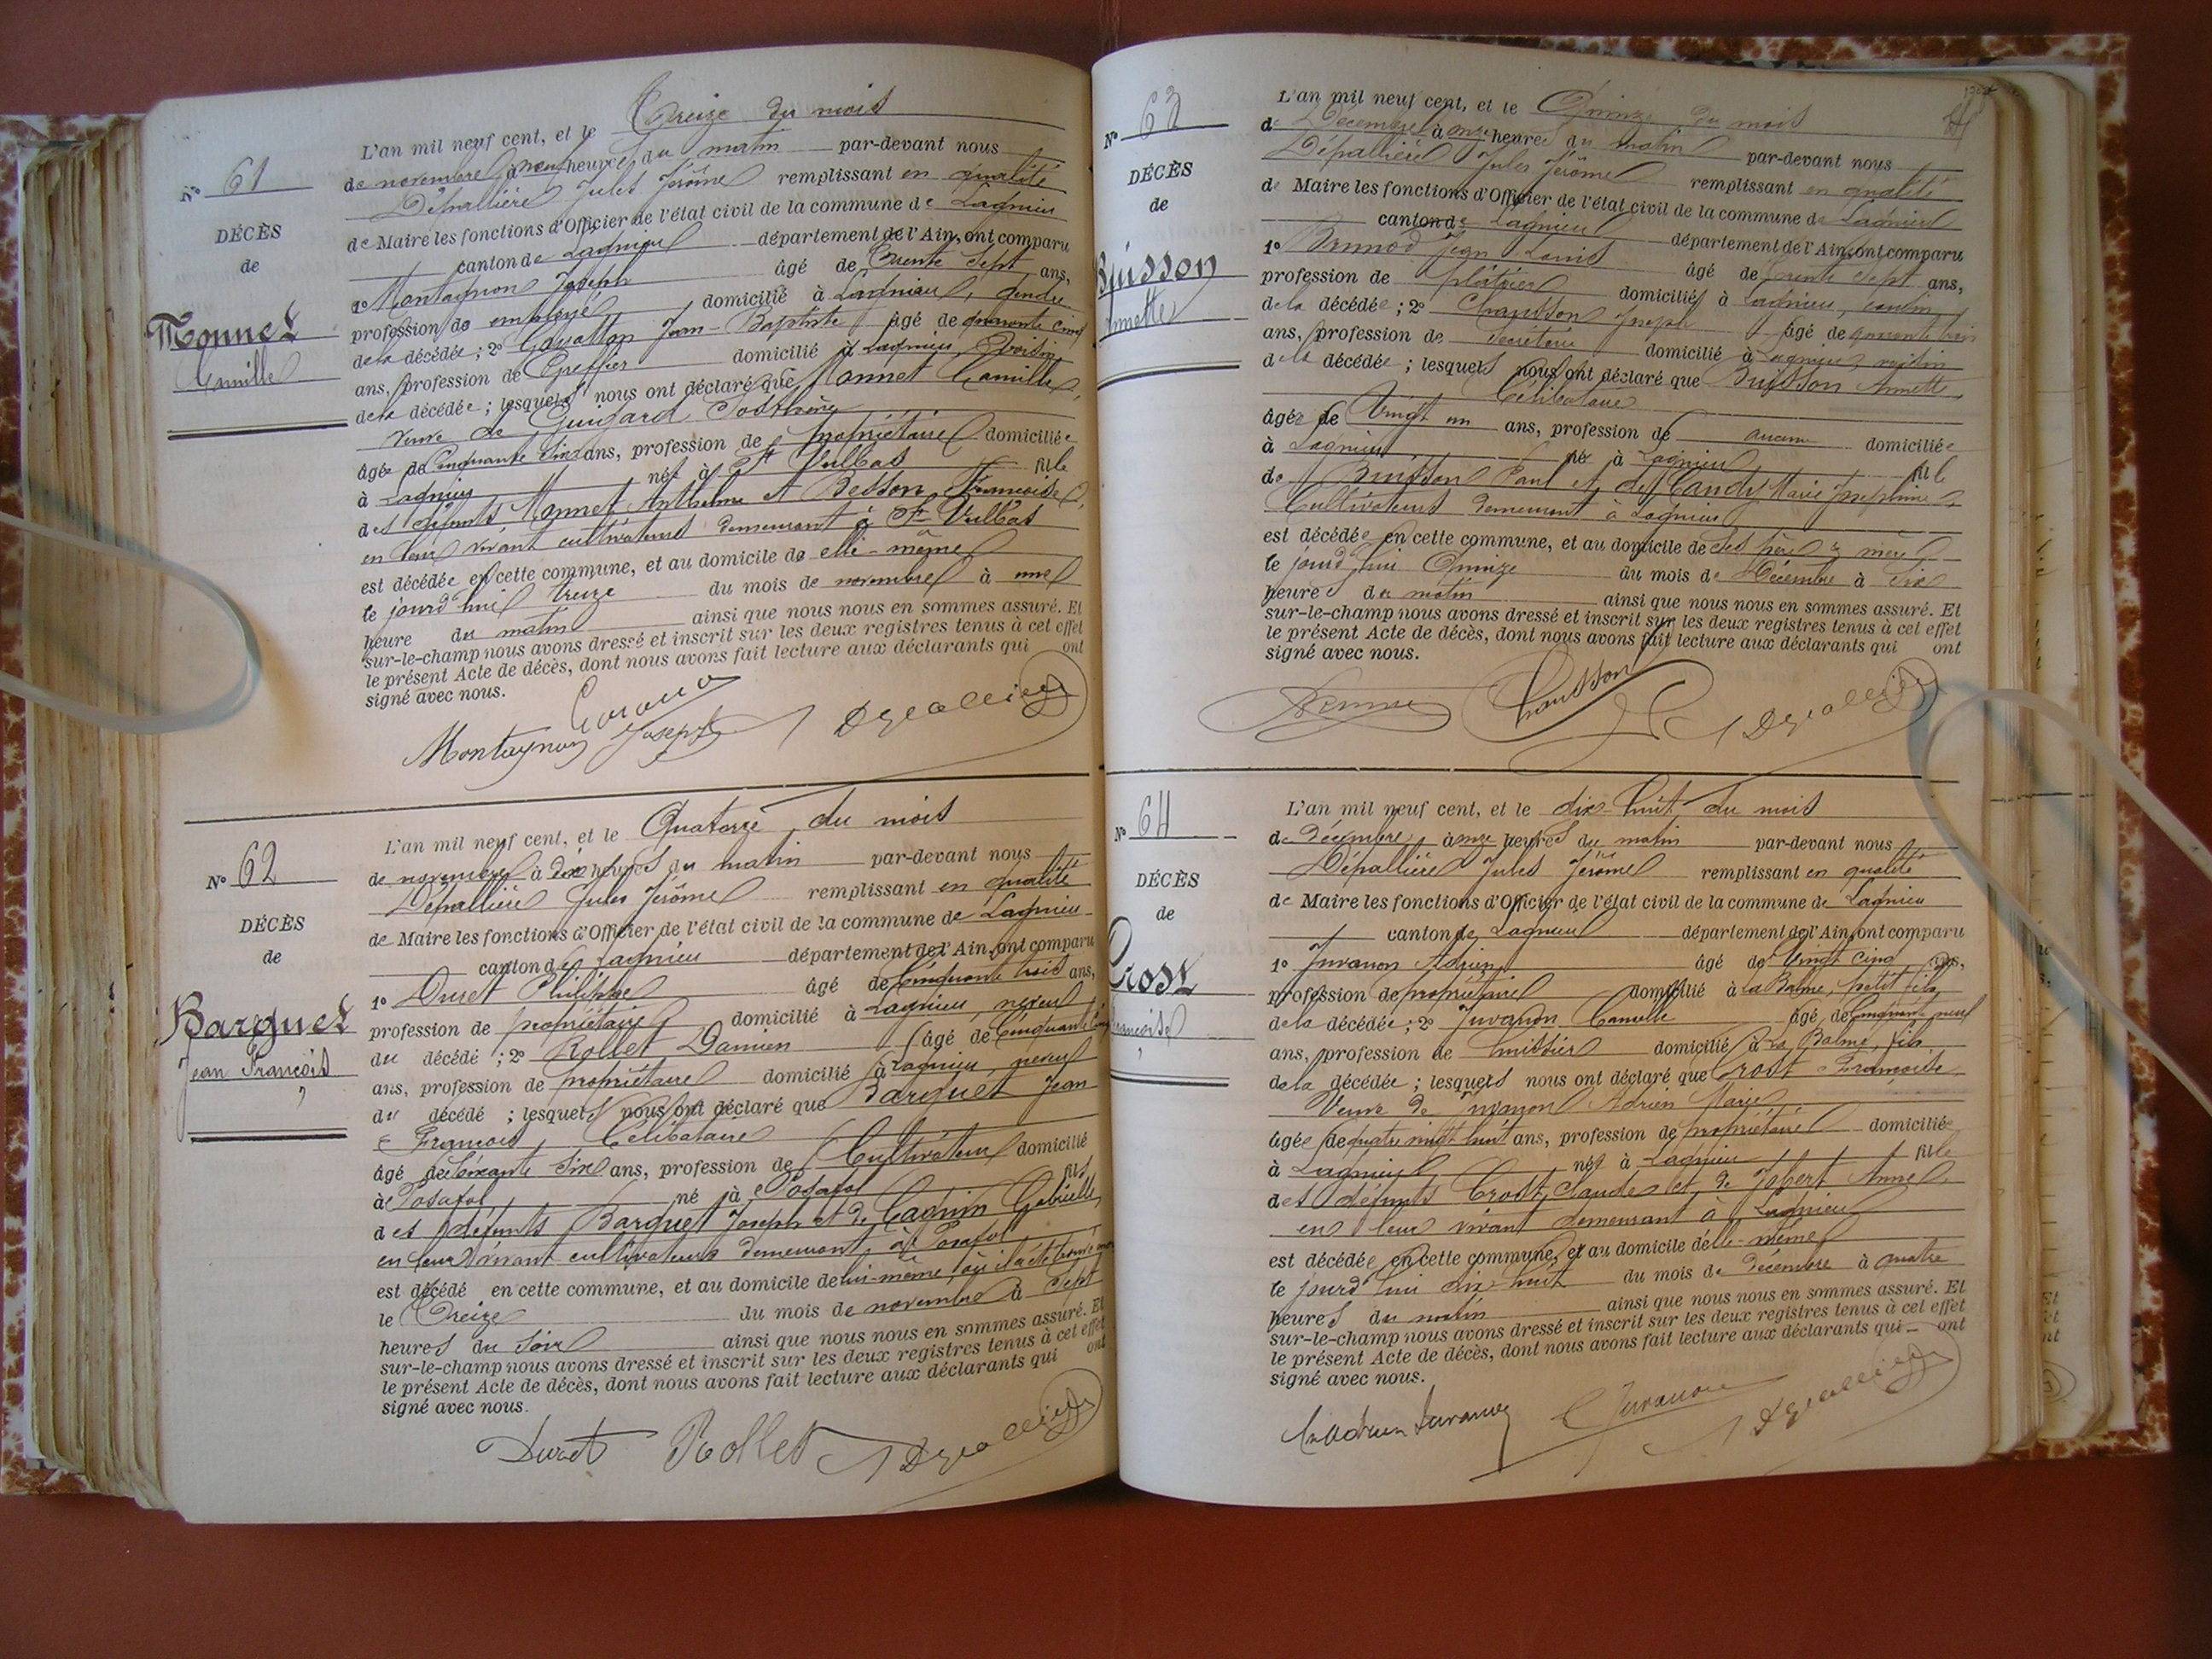 N° 61
DÉCÈS
de
Monnet
Camille
L'an mil neuf cent, et le Treize du mois
de novembre à neuf heures du matin par-devant nous
Dépallière Jules Jérôme remplissant en qualité
de Maire les fonctions d'Officier de l'état civil de la commune de Lagnieu
canton de Lagnieu département de l'Ain, ont comparu
1° Montagnon Joseph âgé de Trente sept ans,
profession de employé domicilié à Lagnieu, gendre
de la décédée ; 2° Jean-Baptiste âgé de quarante cinq
ans, profession de Greffier domicilié à Lagnieu, voisin
de la décédée ; lesquels nous ont déclaré que Monnet Camille,
veuve de Guigard Sosthène
âgée de Cinquante six ans, profession de propriétaire domiciliée
à Lagnieu née à St Vulbas fille
des défunts Monnet Anthelme et Besson Françoise,
en leur vivant cultivateurs demeurant à St Vulbas
est décédée en cette commune, et au domicile de elle-même
le jourd'hui treize du mois de novembre à une
heure du matin ainsi que nous nous en sommes assuré. Et
sur-le-champ nous avons dressé et inscrit sur les deux registres tenus à cet effet
le présent Acte de décès, dont nous avons fait lecture aux déclarants qui ont
signé avec nous.
Montagnon Joseph
N° 62
DÉCÈS
de
Barquet
Jean François
L'an mil neuf cent, et le Quatorze du mois
de novembre à dix heures du matin par-devant nous
Dépallière Jules Jérôme remplissant en qualité
de Maire les fonctions d'Officier de l'état civil de la commune de Lagnieu
canton de Lagnieu département de l'Ain, ont comparu
1° Duret Philippe âgé de Cinquante trois ans,
profession de propriétaire domicilié à Lagnieu, neveu
du décédé ; 2° Rollet Damien âgé de Cinquante
ans, profession de propriétaire domicilié à Lagnieu, neveu
du décédé ; lesquels nous ont déclaré que Barquet Jean
François, Célibataire
âgé de Soixante six ans, profession de Cultivateur domicilié
à Posafol né à Posafol fils
des défunts Barquet Joseph et de Cagnin Gabrielle,
en leur vivant cultivateurs demeurant à Posafol
est décédé en cette commune, et au domicile de lui-même, où il a été trouvé mort
le Treize du mois de novembre à sept
heures du soir ainsi que nous nous en sommes assuré. Et
sur-le-champ nous avons dressé et inscrit sur les deux registres tenus à cet effet
le présent Acte de décès, dont nous avons fait lecture aux déclarants qui ont
signé avec nous.
Duret Rollet
N° 63
DÉCÈS
de
Buisson
Annette
L'an mil neuf cent, et le Quinze du mois
de Décembre à onze heures du matin par-devant nous
Dépallière Jules Jérôme remplissant en qualité
de Maire les fonctions d'Officier de l'état civil de la commune de Lagnieu
canton de Lagnieu département de l'Ain, ont comparu
1° Brunod Jean Louis âgé de trente sept ans,
profession de plâtrier domicilié à Lagnieu, cousin
de la décédée ; 2° Chausson Joseph âgé de quarante trois
ans, profession de secrétaire domicilié à Lagnieu, voisin
de la décédée ; lesquels nous ont déclaré que Buisson Annette,
Célibataire
âgée de Vingt un ans, profession de aucune domiciliée
à Lagnieu née à Lagnieu fille
de Buisson Paul et de Candy Marie Josephine,
Cultivateurs demeurant à Lagnieu
est décédée en cette commune, et au domicile de ses père & mère
le jourd'hui Quinze du mois de Décembre à six
heures du matin ainsi que nous nous en sommes assuré. Et
sur-le-champ nous avons dressé et inscrit sur les deux registres tenus à cet effet
le présent Acte de décès, dont nous avons fait lecture aux déclarants qui ont
signé avec nous.
Chausson
N° 64
DÉCÈS
de
Crost
Françoise
L'an mil neuf cent, et le dix-huit du mois
de Décembre à onze heures du matin par-devant nous
Dépallière Jules Jérôme remplissant en qualité
de Maire les fonctions d'Officier de l'état civil de la commune de Lagnieu
canton de Lagnieu département de l'Ain, ont comparu
1° Juvanon Adrien âgé de Vingt cinq ans,
profession de propriétaire domicilié à la Balme, petit fils
de la décédée ; 2° Juvanon Camille âgé de Cinquante neuf
ans, profession de huissier domicilié à La Balme, fils
de la décédée ; lesquels nous ont déclaré que Crost Françoise,
Veuve de Juvanon Adrien Marie
âgée de quatre vingt huit ans, profession de propriétaire domiciliée
à Lagnieu née à Lagnieu fille
des défunts Crost Claude et de Jobert Anne,
en leur vivant demeurant à Lagnieu
est décédée en cette commune, et au domicile d'elle-même
le jourd'hui dix-huit du mois de décembre à quatre
heures du matin ainsi que nous nous en sommes assuré. Et
sur-le-champ nous avons dressé et inscrit sur les deux registres tenus à cet effet
le présent Acte de décès, dont nous avons fait lecture aux déclarants qui ont
signé avec nous.
Juvanon